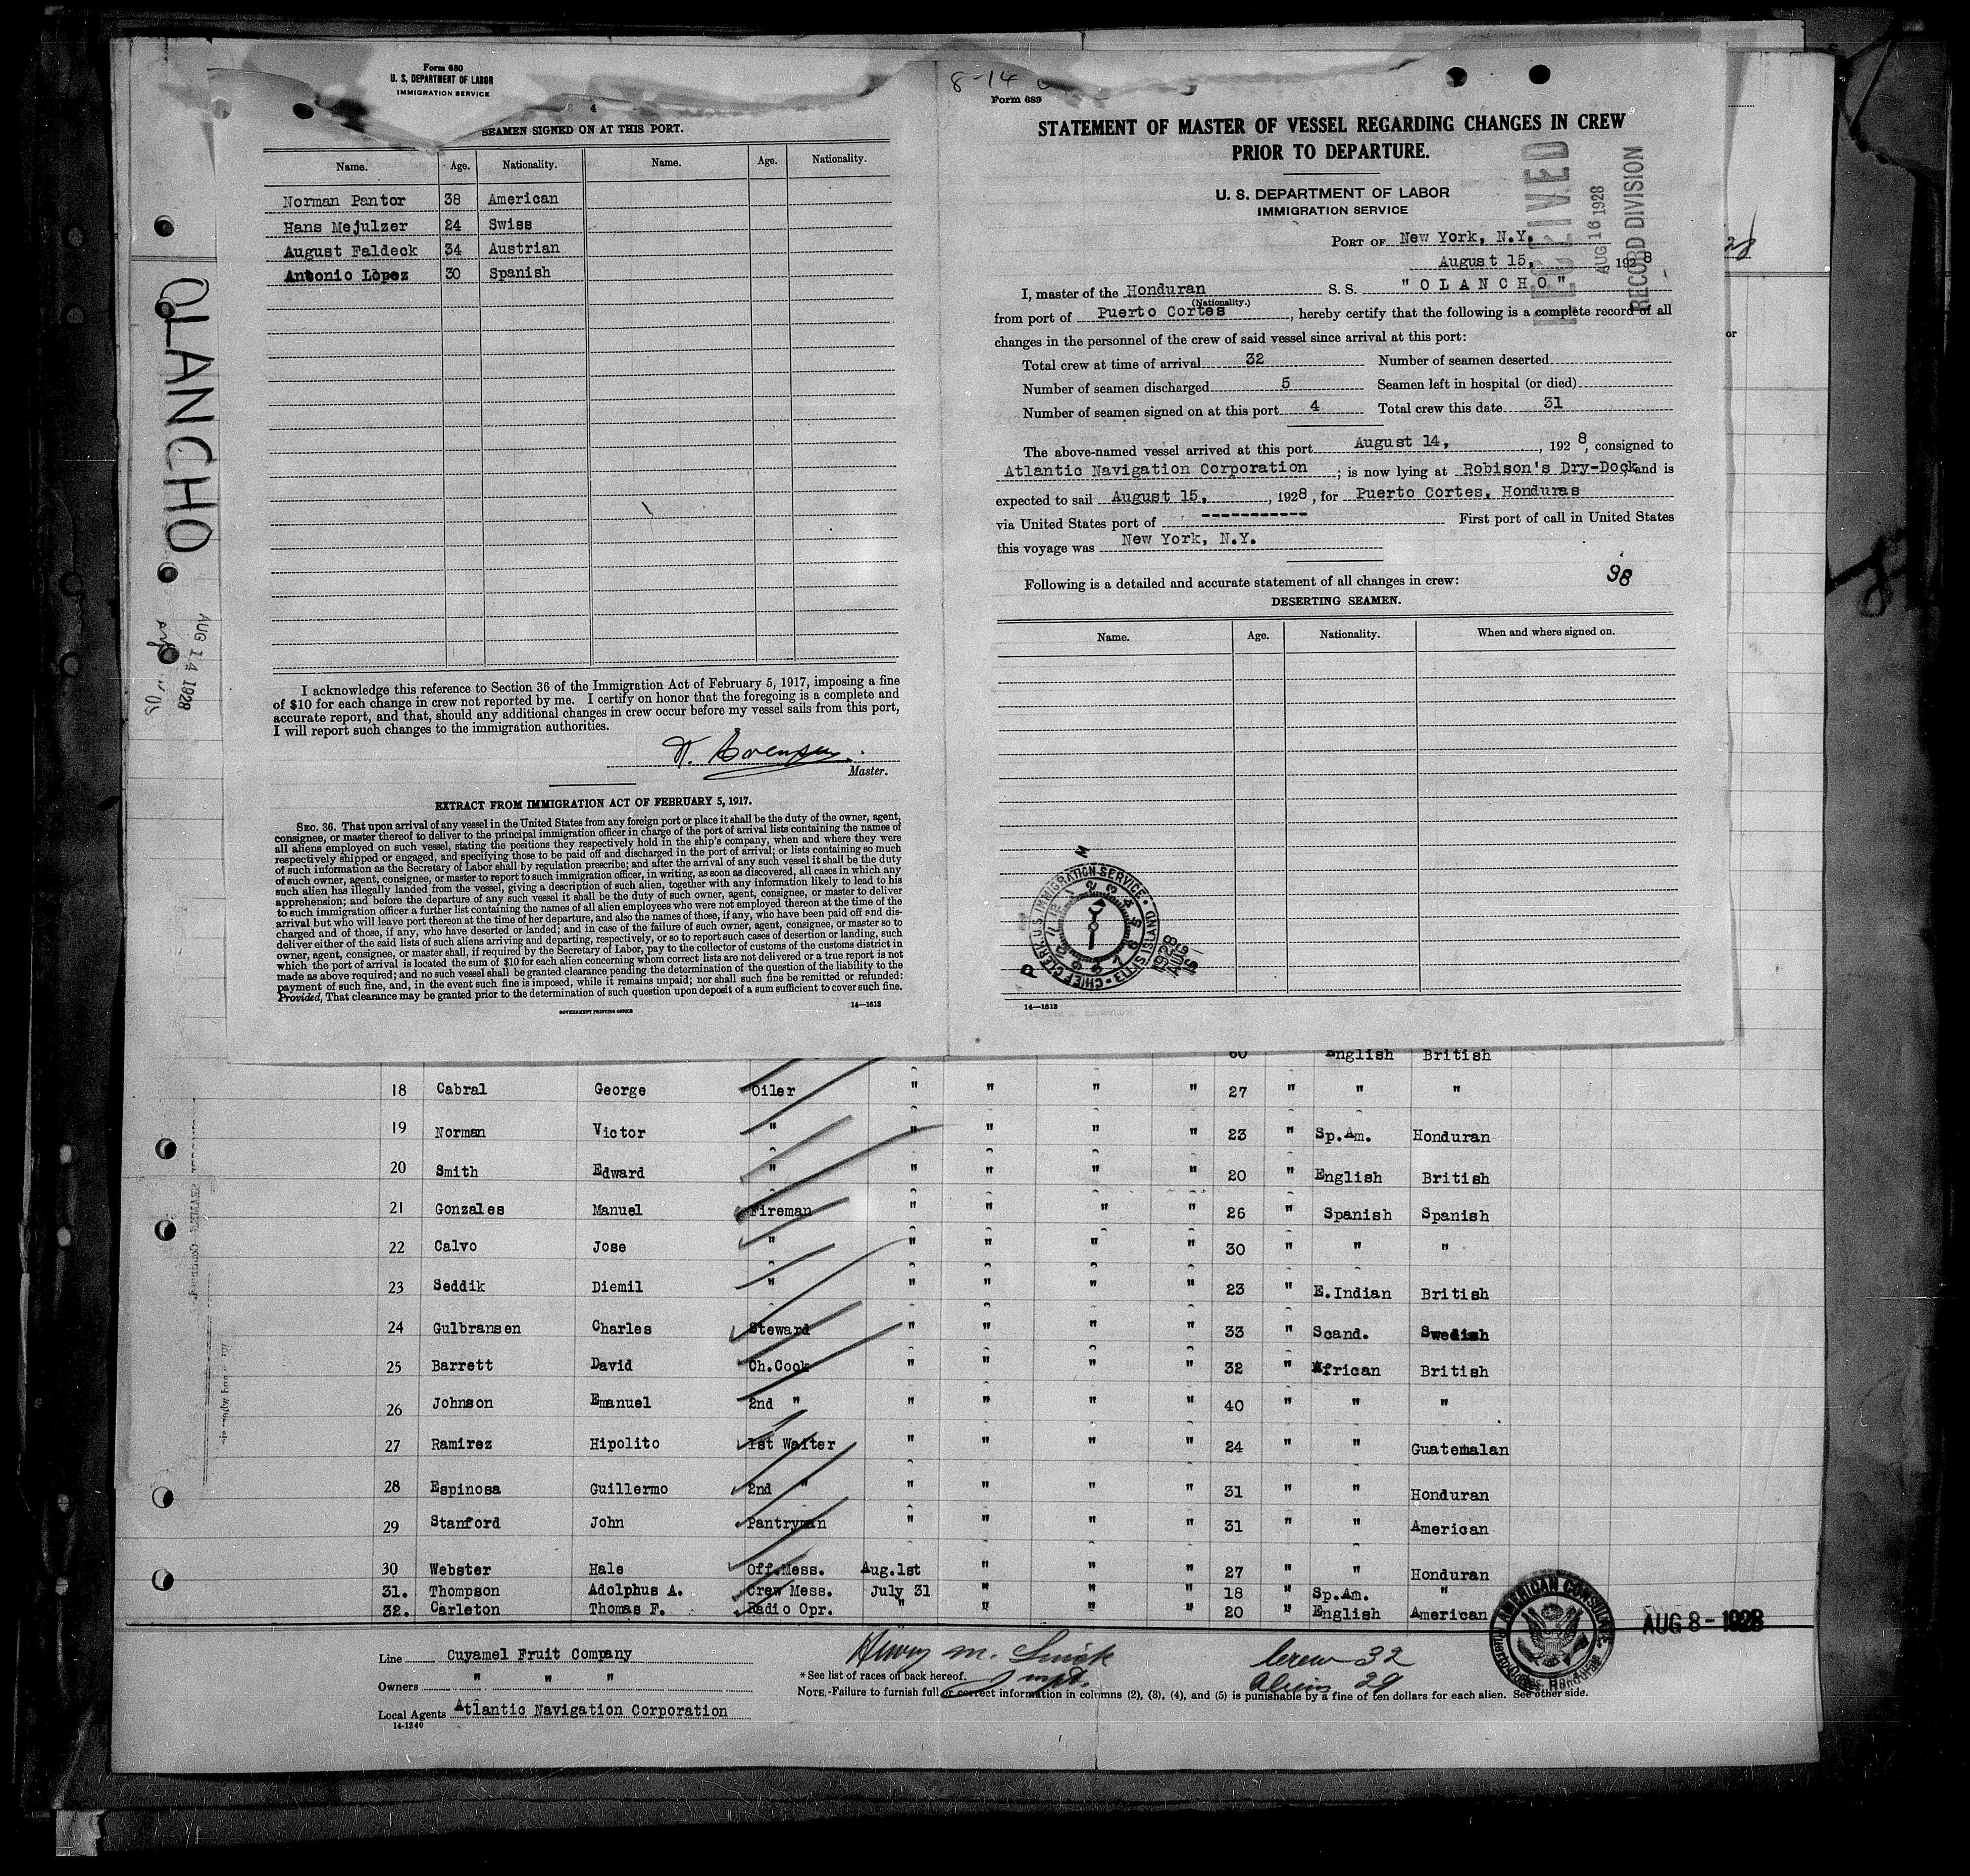 Form 680
U. S. DEPARTMENT OF LABOR
IMMIGRATION SERVICE
4
SEAMEN SIGNED ON AT THIS PORT.
Name. Age. Nationality. Name. Age. Nationality.
Norman Pantor 38 American
Hans Mejulzer 24 Swiss
August Faldeck 34 Austrian
Antonio Lopez 30 Spanish
I acknowledge this reference to Section 36 of the Immigration Act of February 5, 1917, imposing a fine
of $10 for each change in crew not reported by me. I certify on honor that the foregoing is a complete and
accurate report, and that, should any additional changes in crew occur before my vessel sails from this port,
I will report such changes to the immigration authorities.
Master.
EXTRACT FROM IMMIGRATION ACT OF FEBRUARY 5, 1917.
SEC. 36. That upon arrival of any vessel in the United States from any foreign port or place it shall be the duty of the owner, agent,
consignee, or master thereof to deliver to the principal immigration officer in charge of the port of arrival lists containing the names of
all aliens employed on such vessel, stating the positions they respectively hold in the ship's company, when and where they were
respectively shipped or engaged, and specifying those to be paid off and discharged in the port of arrival; or lists containing so much
of such information as the Secretary of Labor shall by regulation prescribe; and after the arrival of any such vessel it shall be the duty
of such owner, agent, consignee, or master to report to such immigration officer, in writing, as soon as discovered, all cases in which any
such alien has illegally landed from the vessel, giving a description of such alien, together with any information likely to lead to his
apprehension; and before the departure of any such vessel it shall be the duty of such owner, agent, consignee, or master to deliver
to such immigration officer a further list containing the names of all alien employees who were not employed thereon at the time of the
arrival but who will leave port thereon at the time of her departure, and also the names of those, if any, who have been paid off and dis-
charged and of those, if any, who have deserted or landed; and in case of the failure of such owner, agent, consignee, or master so to
deliver either of the said lists of such aliens arriving and departing, respectively, or so to report such cases of desertion or landing, such
owner, agent, consignee, or master shall, if required by the Secretary of Labor, pay to the collector of customs of the customs district in
which the port of arrival is located the sum of $10 for each alien concerning whom correct lists are not delivered or a true report is not
made as above required; and no such vessel shall be granted clearance pending the determination of the question of the liability to the
payment of such fine, and, in the event such fine is imposed, while it remains unpaid; nor shall such fine be remitted or refunded:
Provided, That clearance may be granted prior to the determination of such question upon deposit of a sum sufficient to cover such fine.
14—1613
GOVERNMENT PRINTING OFFICE
8-14
Form 689
STATEMENT OF MASTER OF VESSEL REGARDING CHANGES IN CREW
PRIOR TO DEPARTURE.
U. S. DEPARTMENT OF LABOR
IMMIGRATION SERVICE
RECEIVED
AUG 16 1928
RECORD DIVISION
PORT OF New York, N.Y.
August 15, 1928
I, master of the Honduran S. S. "OLANCHO"
(Nationality.)
from port of Puerto Cortes, hereby certify that the following is a complete record of all
changes in the personnel of the crew of said vessel since arrival at this port:
Total crew at time of arrival 32 Number of seamen deserted
Number of seamen discharged 5 Seamen left in hospital (or died)
Number of seamen signed on at this port 4 Total crew this date 31
The above-named vessel arrived at this port August 14, 1928, consigned to
Atlantic Navigation Corporation; is now lying at Robison's Dry-Dock, and is
expected to sail August 15, 1928, for Puerto Cortes, Honduras
via United States port of ----------- First port of call in United States
this voyage was New York, N.Y.
98
Following is a detailed and accurate statement of all changes in crew:
DESERTING SEAMEN.
Name. Age. Nationality. When and where signed on.
CHIEF CLERK, U.S. IMMIGRATION SERVICE · ELLIS ISLAND
1928 AUG
14—1613
OLANCHO
AUG 14 1928
or
60 English British
18 Cabral George Oiler " " " " 27 " " "
19 Norman Victor " " " " " 23 " Sp.Am. Honduran
20 Smith Edward " " " " " 20 " English British
21 Gonzales Manuel Fireman " " " " 26 " Spanish Spanish
22 Calvo Jose " " " " " 30 " " "
23 Seddik Diemil " " " " " 23 " E.Indian British
24 Gulbransen Charles Steward " " " " 33 " Scand. Swedish
25 Barrett David Ch.Cook " " " " 32 " African British
26 Johnson Emanuel 2nd " " " " " 40 " " "
27 Ramirez Hipolito 1st Waiter " " " " 24 " " Guatemalan
28 Espinosa Guillermo 2nd " " " " " 31 " " Honduran
29 Stanford John Pantryman " " " " 31 " " American
30 Webster Hale Off.Mess. Aug.1st " " " 27 " " Honduran
31. Thompson Adolphus A. Crew Mess. July 31 " " " 18 " Sp.Am. "
32. Carleton Thomas F. Radio Opr. " " " " 20 " English American
AMERICAN CONSULATE
Puerto Cortes, Honduras
AUG 8 - 1928
Line Cuyamel Fruit Company
Owners " " "
Local Agents Atlantic Navigation Corporation
14-1240
Henry M.
Crew 32
Aliens 29
*See list of races on back hereof.
NOTE.-Failure to furnish full or correct information in columns (2), (3), (4), and (5) is punishable by a fine of ten dollars for each alien. See other side.